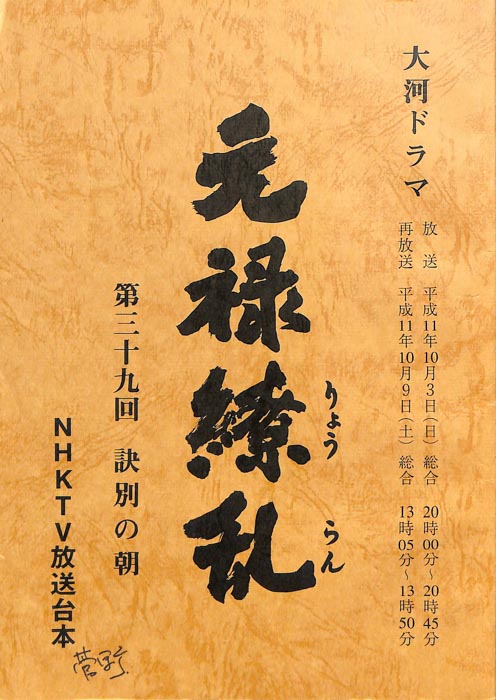 大河ドラマ
放送 平成11年10月3日(日) 総合 20時00分~20時45分
再放送 平成11年10月9日(土) 総合 13時05分~13時50分
元禄繚乱
りょう らん
第三十九回 訣別の朝
NHKTV放送台本
菅野